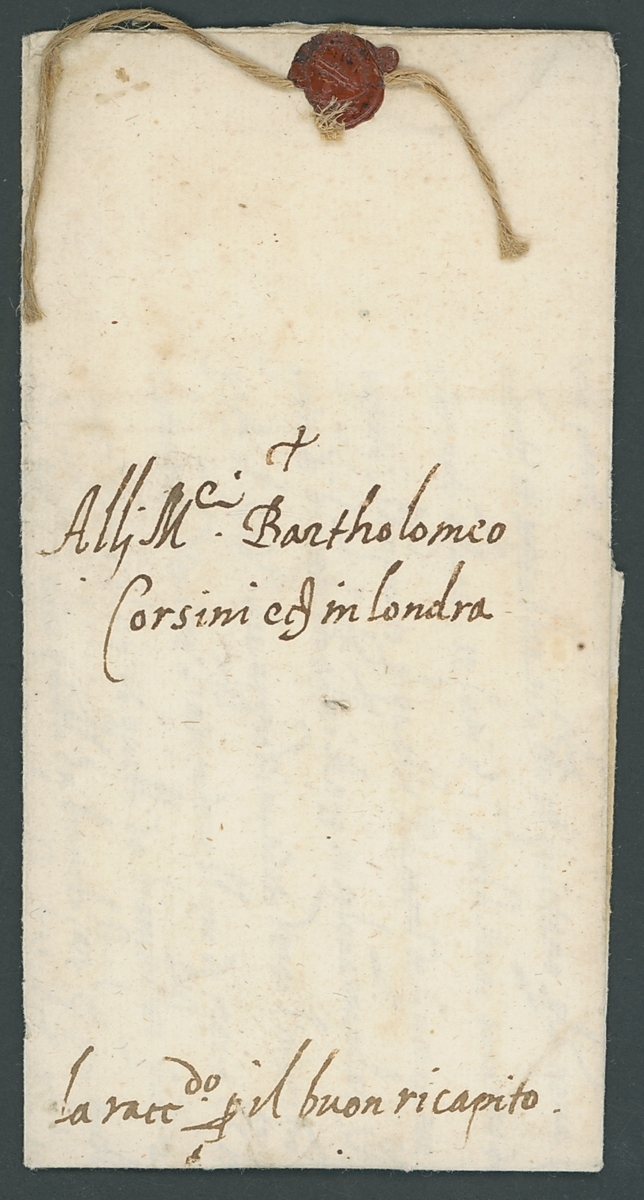 ✝
Allj M.ci Bartholomeo
Corsini ec in londra
la racc.do ꝑ il buon ricapito.